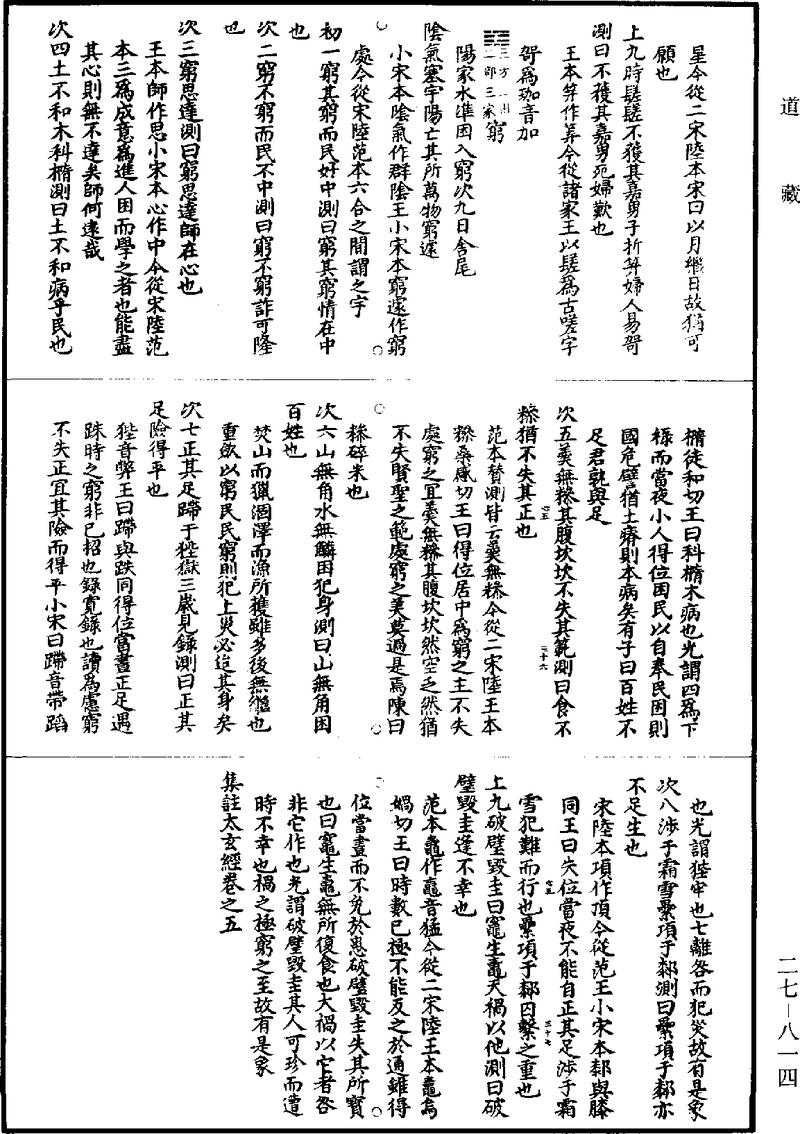 道藏
星今從二宋陸本宋曰以月繼日故猶可
願也
上九時䰈䰈不獲其嘉男子折笄婦人易哿
測曰不獲其嘉男死婦歎也
王本笄作筭今從諸家王以䰈爲古嗟字
哿爲珈音加
三方一州一部三家窮
陽家水準困入窮次九日舍尾
陰氣塞宇陽亡其所萬物窮遽
小宋本陰氣作群陰王小宋本窮遽作窮
處今從宋陸范本六合之間謂之宇
初一窮其窮而民好中測曰窮其窮情在中
也
次二窮不窮而民不中測曰窮不窮詐可隆
也
次三窮思達測曰窮思達師在心也
王本師作思小宋本心作中今從宋陸范
本三爲成意爲進人困而學之者也能盡
其心則無不達矣師何遠哉
次四土不和木科橢測曰土不和病乎民也
橢徒和切王曰科橢木病也光謂四爲下
祿而當夜小人得位困民以自奉民困則
國危譬猶土瘠則木病矣有子曰百姓不
足君孰與足
次五羹無糝其腹坎坎不失其範測曰食不
糝猶不失其正也
范本贊測皆云羹無糝今從二宋陸王本
糝桑感切王曰得位居中爲窮之主不失
處窮之宜羹無糝其腹坎坎然空乏然猶
不失賢聖之範處窮之美莫過是焉陳曰
糝碎米也
次六山無角水無鱗困犯身測曰山無角困
百姓也
焚山而獵涸澤而漁所獲雖多後無繼也
重斂以窮民民窮則犯上災必迨其身矣
次七正其足蹛于狴獄三歲見錄測曰正其
足險得平也
狴音弊王曰蹛與跌同得位當晝正足遇
跦時之窮非已招也錄寬錄也讀爲慮窮
不失正宜其險而得平小宋曰蹛音帶蹈
也光謂狴牢也七離咎而犯災故有是象
次八涉于霜雪纍項于厀測曰纍項于厀亦
不足生也
宋陸本項作頂今從范王小宋本厀與膝
同王曰失位當夜不能自正其足涉于霜
雪犯難而行也纍項于厀囚繫之重也
上九破璧毀圭曰竈生䵷天禍以他測曰破
璧毀圭逢不幸也
范本䵷作黽音猛今從二宋陸王本䵷烏
媧切王曰時數已極不能反之於通雖得
位當晝而不免於患破璧毀圭失其所寶
也曰竈生䵷無所復食也大禍以它者咎
非它作也光謂破璧毀圭其人可珍而遭
時不幸也禍之極窮之至故有是象
集註太玄經卷之五
二七—八一四